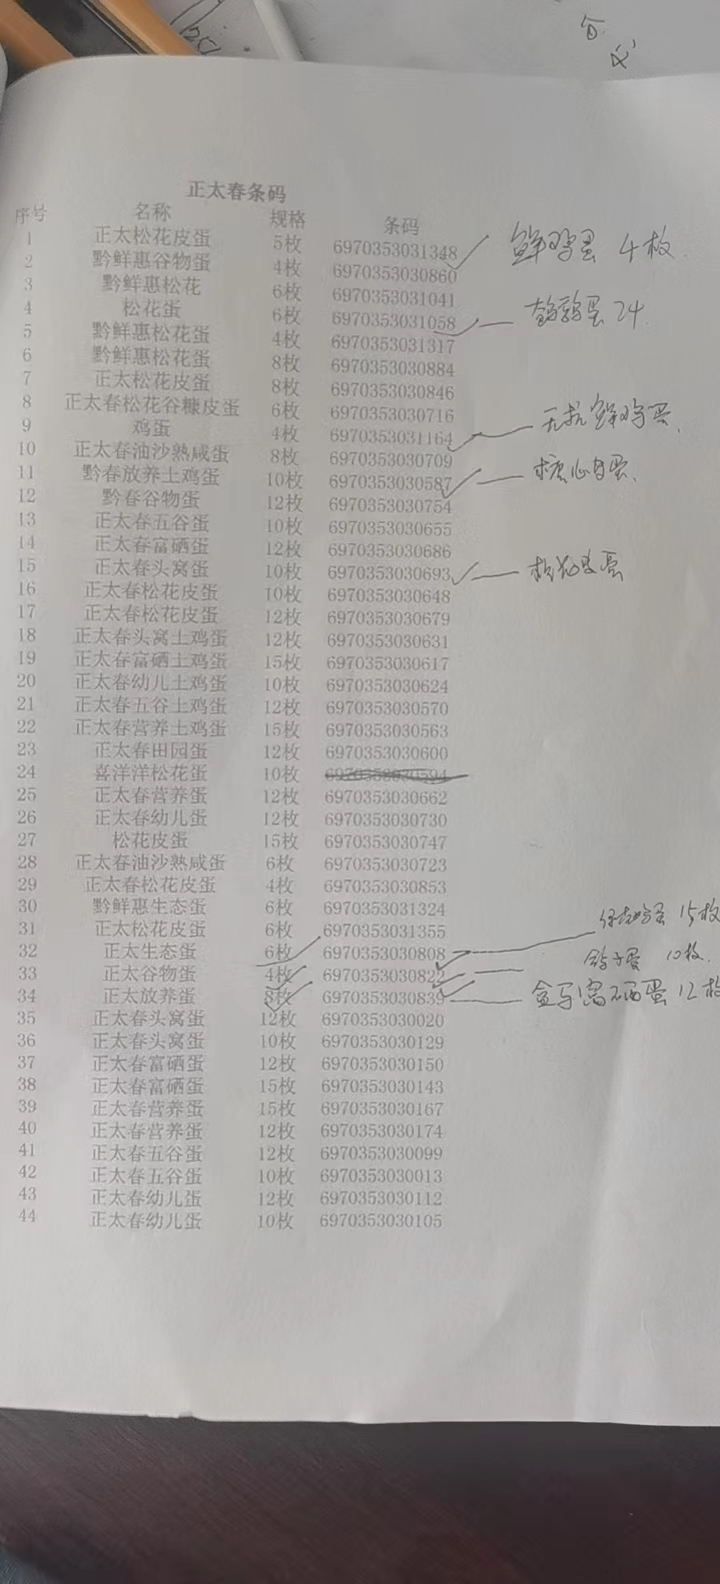 正太春条码
序号 名称 规格 条码
1 正太松花皮蛋 5枚 6970353031348 鲜鸡蛋 4枚
2 黔鲜惠谷物蛋 4枚 6970353030860
3 黔鲜惠松花 6枚 6970353031041
4 松花蛋 6枚 6970353031058 鹌鹑蛋 24
5 黔鲜惠松花蛋 4枚 6970353031317
6 黔鲜惠松花蛋 8枚 6970353030884
7 正太松花皮蛋 8枚 6970353030846
8 正太春松花谷糠皮蛋 6枚 6970353030716
9 鸡蛋 4枚 6970353031164 无抗鲜鸡蛋
10 正太春油沙熟咸蛋 8枚 6970353030709
11 黔春放养土鸡蛋 10枚 6970353030587 糖心皮蛋
12 黔春谷物蛋 12枚 6970353030754
13 正太春五谷蛋 10枚 6970353030655
14 正太春富硒蛋 12枚 6970353030686
15 正太春头窝蛋 10枚 6970353030693 松花皮蛋
16 正太春松花皮蛋 10枚 6970353030648
17 正太春松花皮蛋 12枚 6970353030679
18 正太春头窝土鸡蛋 12枚 6970353030631
19 正太春富硒土鸡蛋 15枚 6970353030617
20 正太春幼儿土鸡蛋 10枚 6970353030624
21 正太春五谷土鸡蛋 12枚 6970353030570
22 正太春营养土鸡蛋 15枚 6970353030563
23 正太春田园蛋 12枚 6970353030600
24 喜洋洋松花蛋 10枚 6970353030594
25 正太春营养蛋 12枚 6970353030662
26 正太春幼儿蛋 12枚 6970353030730
27 松花皮蛋 15枚 6970353030747
28 正太春油沙熟咸蛋 6枚 6970353030723
29 正太春松花皮蛋 4枚 6970353030853
30 黔鲜惠生态蛋 6枚 6970353031324
31 正太松花皮蛋 6枚 6970353031355
32 正太生态蛋 6枚 6970353030808 蛋 15枚
33 正太谷物蛋 4枚 697035303082 鸽子蛋 10枚
34 正太放养蛋 8枚 6970353030839 富硒蛋 12枚
35 正太春头窝蛋 12枚 6970353030020
36 正太春头窝蛋 10枚 6970353030129
37 正太春富硒蛋 12枚 6970353030150
38 正太春富硒蛋 15枚 6970353030143
39 正太春营养蛋 15枚 6970353030167
40 正太春营养蛋 12枚 6970353030174
41 正太春五谷蛋 12枚 6970353030099
42 正太春五谷蛋 10枚 6970353030013
43 正太春幼儿蛋 12枚 6970353030112
44 正太春幼儿蛋 10枚 6970353030105